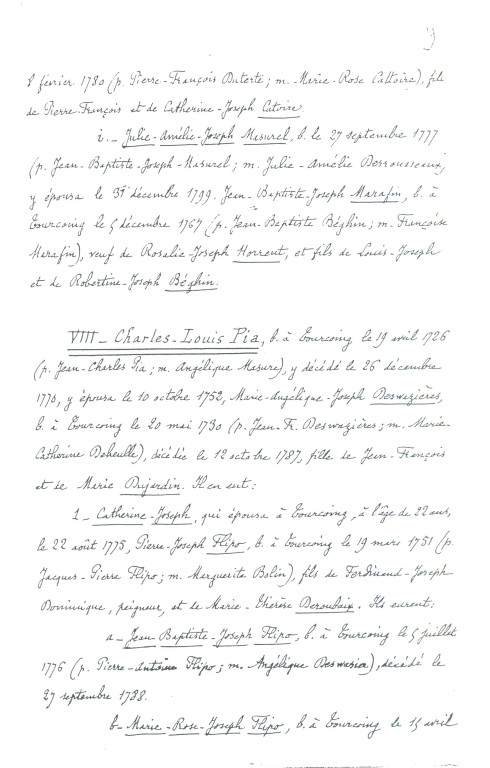 9
8 février 1780 (p. Pierre-François Duterte; m. Marie-Rose Cattoire), fils
de Pierre-François et de Catherine-Joseph Catoire.
i.- Julie-Amélie-Joseph Masurel, b. le 27 septembre 1777
(p. Jean-Baptiste-Joseph-Masurel; m. Julie-Amélie Desrousseaux,
y épousa le 31 décembre 1799, Jean-Baptiste-Joseph Marafin, b. à
Tourcoing le 5 décembre 1767 (p. Jean-Baptiste Béghin; m. Françoise
Marafin), veuf de Rosalie-Joseph Horrent, et fils de Louis-Joseph
et de Robertine-Joseph Béghin.
VIII- Charles-Louis Pia, b. à Tourcoing le 19 avril 1726
(p. Jean-Charles Pia; m. Angélique Masure), y décédé le 26 décembre
1770, y épousa le 10 octobre 1752, Marie-Angélique-Joseph Deswazières,
b. à Tourcoing le 20 mai 1730 (p. Jean-Fr. Deswazières; m. Marie-
Catherine Deheulle), décédée le 12 octobre 1787, fille de Jean-François
et de Marie Dujardin. Il en eut:
1- Catherine-Joseph, qui épousa à Tourcoing, à l'âge de 22 ans,
le 22 août 1775, Pierre-Joseph Flipo, b. à Tourcoing le 19 mars 1751 (p.
Jacques-Pierre Flipo; m. Marguerite Bolin), fils de Ferdinand-Joseph
Dominique, peigneur, et de Marie-Thérèse Deroubaix. Ils eurent:
a- Jean-Baptiste-Joseph Flipo, b. à Tourcoing le 5 juillet
1776 (p. Pierre-Antoine Flipo; m. Angélique Deswasier), décédé le
27 septembre 1788.
b- Marie-Rose-Joseph Flipo, b. à Tourcoing le 15 avril